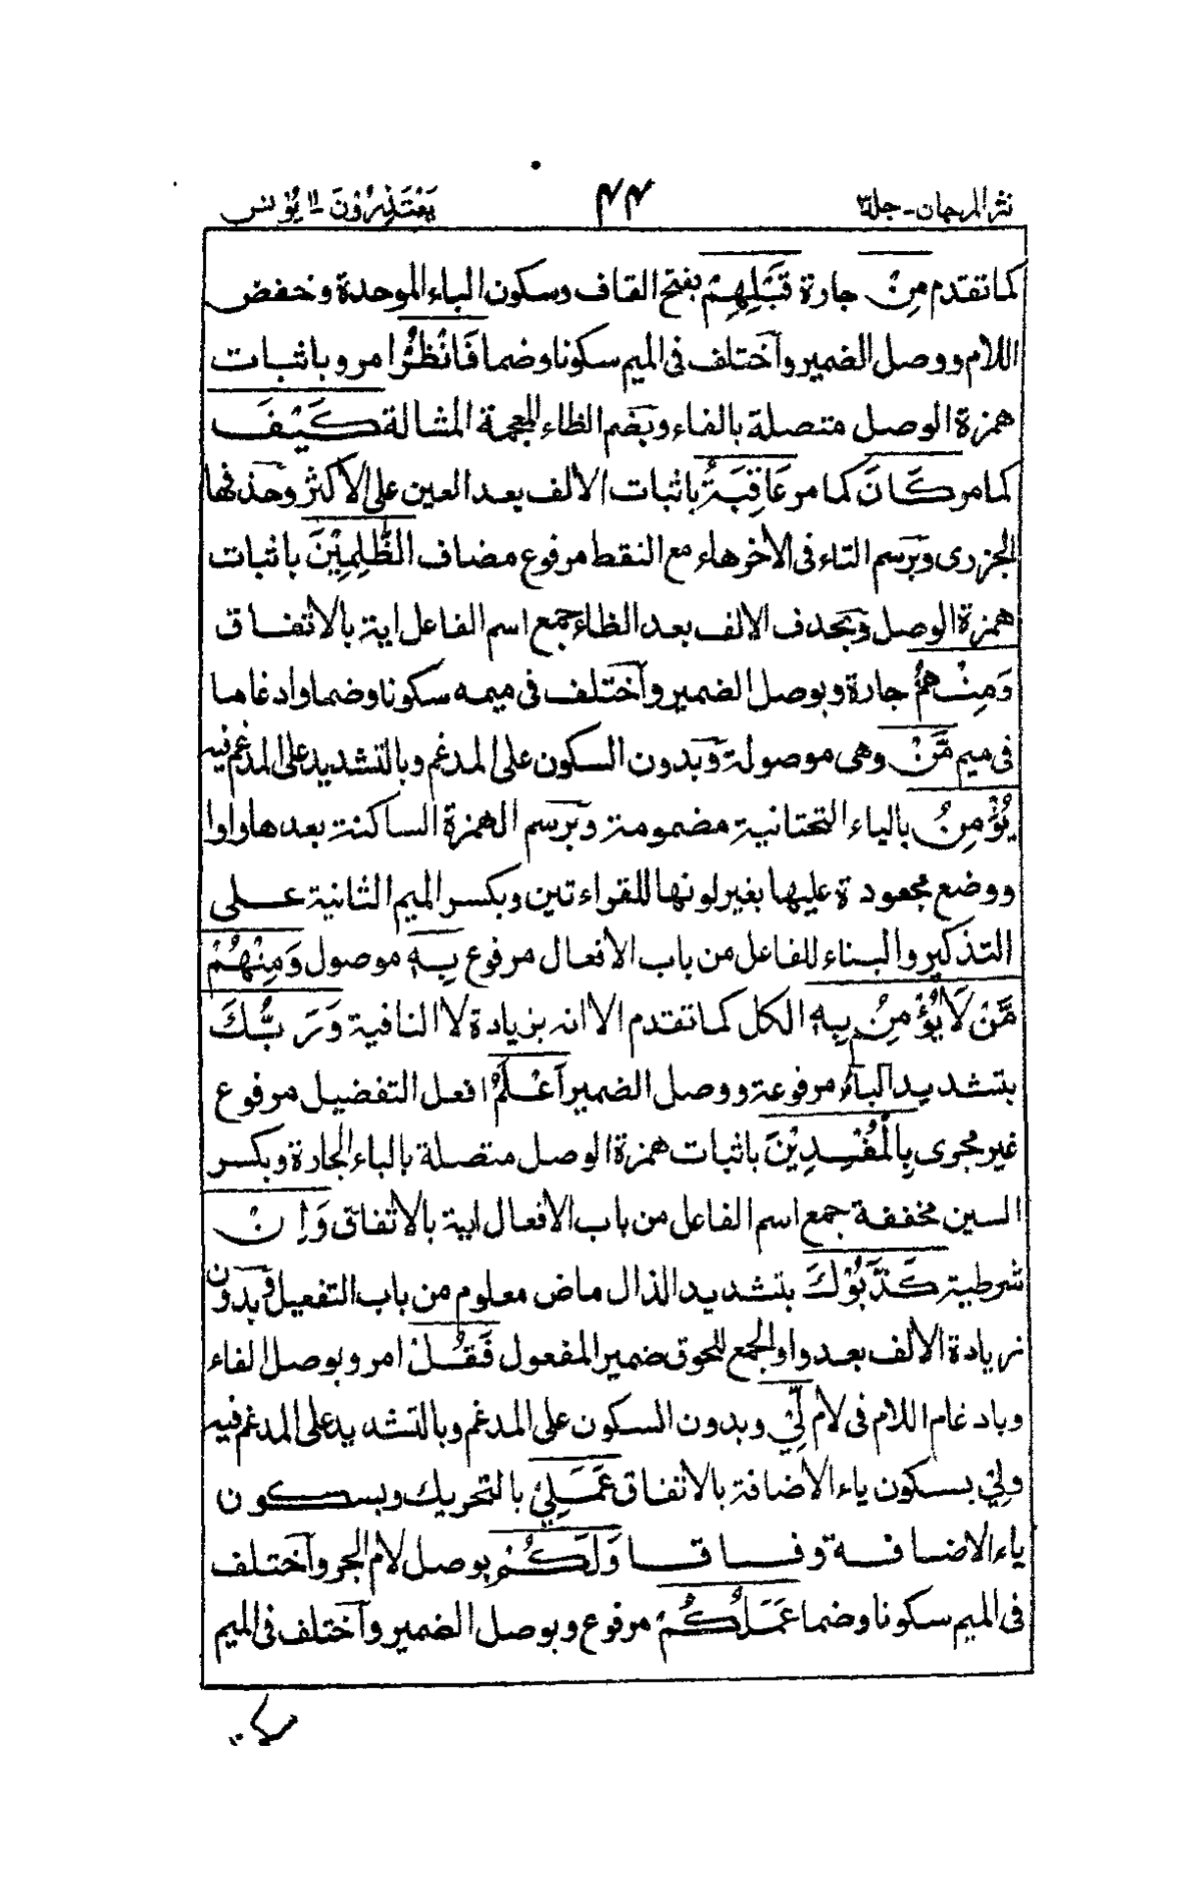 نثر المرجان - جلد۳ ۴۴ يَعْتَذِرُوْنَ ۱۱ يُوْنس
كما تقدم مِنْ جارة قَبْلِهِمْ بفتح القاف وسكون الباء الموحدة وخفض
اللام ووصل الضمير وآختلف فى الميم سكونا وضما فَانْظُرْ امر وباثبات
همزة الوصل متصلة بالفاء وبضم الظاء المعجمة المشالة كَيْفَ
كما مر كَانَ كما مر عَاقِبَةُ باثبات الالف بعد العين على الاكثر وحذفها
الجزرى وبرسم التاء فى الاخر هاء مع النقط مرفوع مضاف الظّٰلِمِيْنَ باثبات
همزة الوصل وبحذف الالف بعد الظاء جمع اسم الفاعل اية بالاتفاق
وَمِنْهُمْ جارة وبوصل الضمير وآختلف فى ميمه سكونا وضما وادغاما
فى ميم مَّنْ وهى موصولة وبدون السكون على المدغم وبالتشديد على المدغم فيه
يُؤْمِنُ بالياء التحتانية مضمومة وبرسم الهمزة الساكنة بعدها واوا
ووضع مجعودة عليها بغير لونها للقراءتين وبكسر الميم الثانية على
التذكير والبناء للفاعل من باب الافعال مرفوع بِهٖ موصول وَمِنْهُمْ
مَّنْ لَا يُؤْمِنُ بِهٖ الكل كما تقدم الا انه بزيادة لا النافية وَرَبُّكَ
بتشديد الباء مرفوعة ووصل الضمير اَعْلَمُ افعل التفضيل مرفوع
غير مجرى بِالْمُفْسِدِيْنَ باثبات همزة الوصل متصلة بالباء الجارة وبكسر
السين مخففة جمع اسم الفاعل من باب الافعال اية بالاتفاق وَاِنْ
شرطية كَذَّبُوْكَ بتشديد الذال ماض معلوم من باب التفعيل وبدون
زيادة الالف بعد واو الجمع للحوق ضمير المفعول فَقُلْ امر وبوصل الفاء
وبادغام اللام فى لام لِّيْ وبدون السكون على المدغم وبالتشديد على المدغم فيه
ولِيْ بسكون ياء الاضافة بالاتفاق عَمَلِيْ بالتحريك وبسكون
ياء الاضافة وفاقا وَلَكُمْ بوصل لام الجر وآختلف
فى الميم سكونا وضما عَمَلُكُمْ مرفوع وبوصل الضمير وآختلف فى الميم